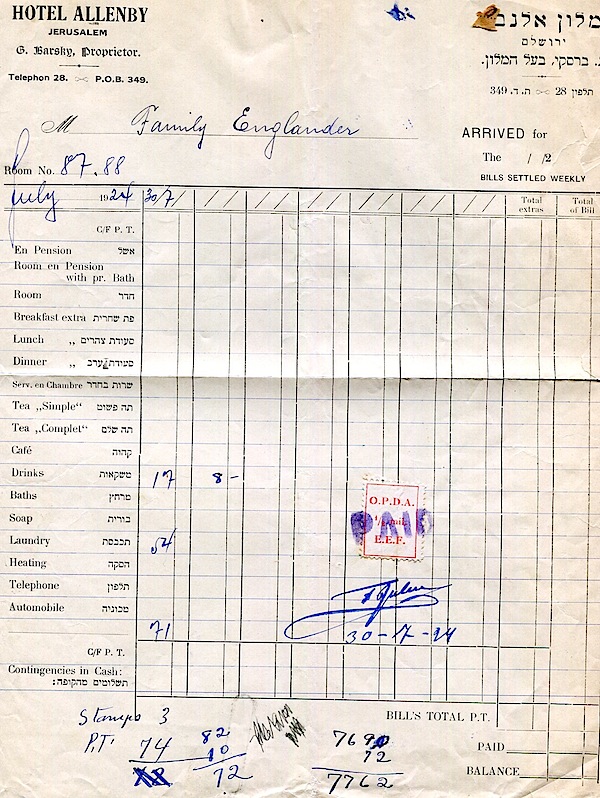 HOTEL ALLENBY
JERUSALEM
G. Barsky, Proprietor.
Telephon 28. P.O.B. 349.
מלון אלנבי
ירושלם
ג. ברסקי, בעל המלון.
תלפון 28 ת. ד. 349
M Family Englander
ARRIVED for
The / /2
BILLS SETTLED WEEKLY
Room No. 87.88
July 1924 30/7
Total extras
Total of Bill
C/F P. T.
En Pension אשל
Room en Pension
with pr. Bath
Room חדר
Breakfast extra פת שחרית
Lunch „ סעודת צהרים
Dinner „ סעודת ערב
Serv. en Chambre שרות בחדר
Tea „Simple“ תה פשוט
Tea „Complet“ תה שלם
Café קהוה
Drinks משקאות 17 8 -
Baths מרחץ
Soap בורית
Laundry תכבסת 54
Heating הסקה
Telephone תלפון
Automobile מכוניה
71
O.P.D.A.
PAID
E.E.F.
30-7-24
C/F P. T.
Contingencies in Cash:
תשלומים מהקופה:
Stamps 3
P.T. 74
82
10
72
BILL'S TOTAL P.T.
PAID
BALANCE
7690
72
7762